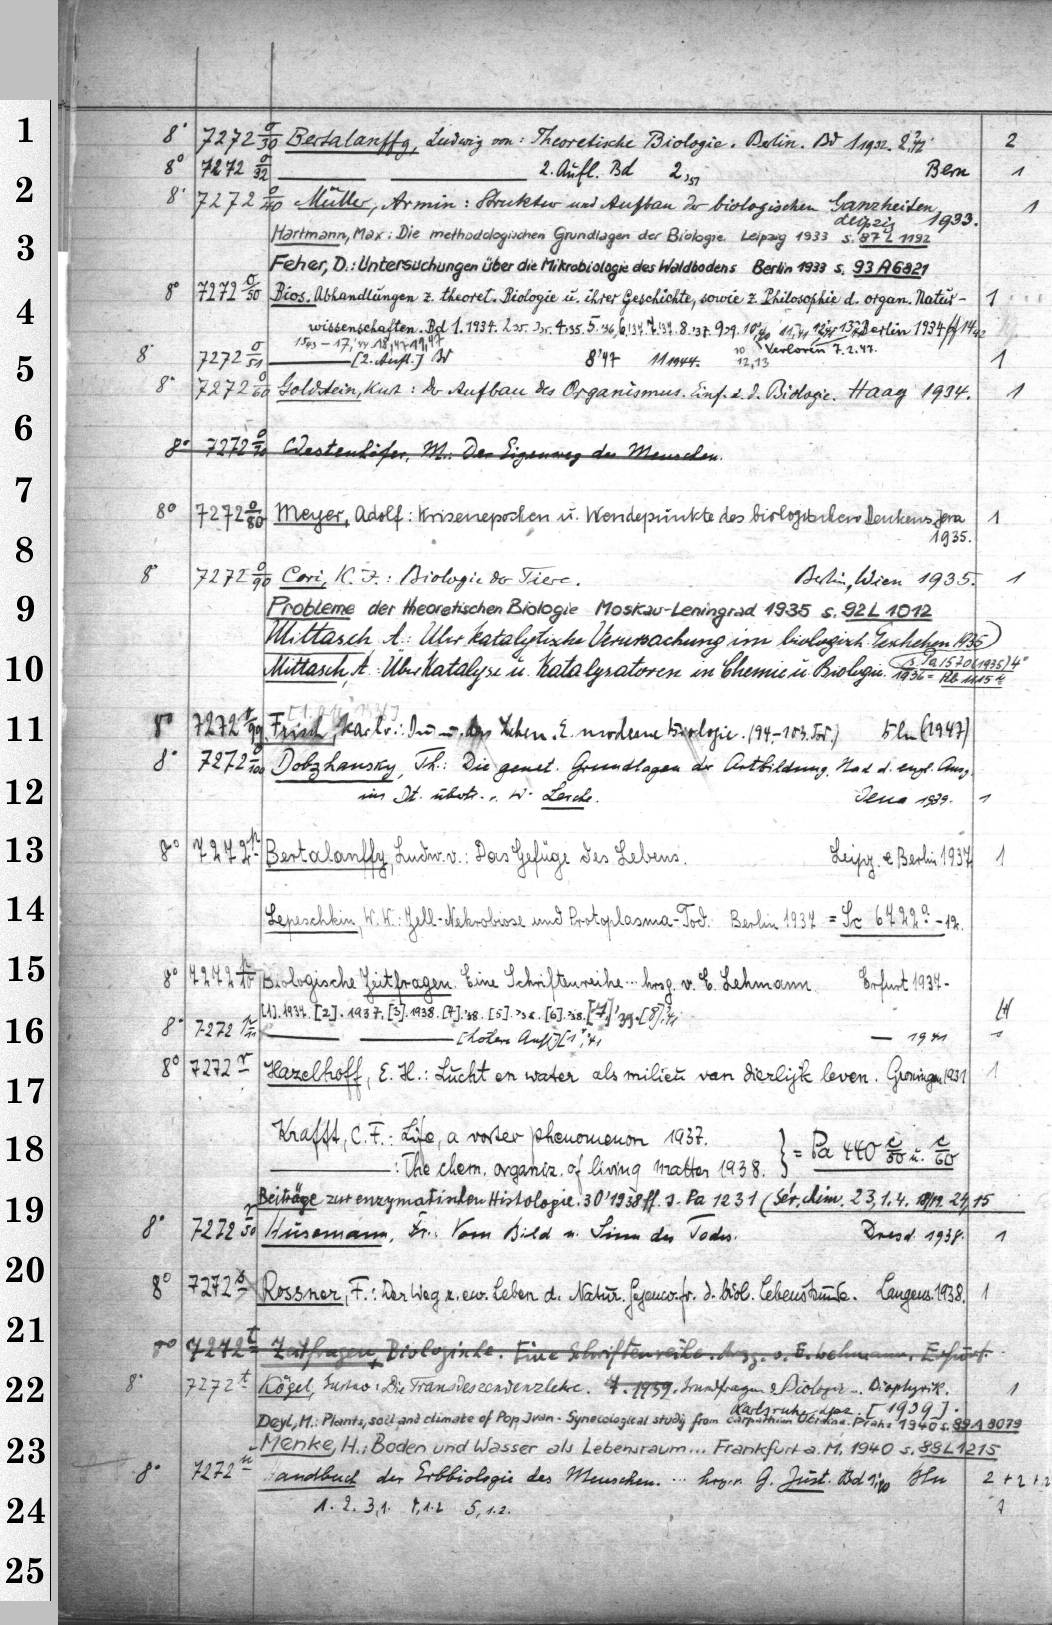 1
8° 7272 o/30 Bertalanffy, Ludwig von: Theoretische Biologie. Berlin. Bd 1 1932. 2,42 2
8° 7272 o/32 2. Aufl. Bd 2,51 Bern 1
2
8° 7272 o/40 Müller, Armin: Struktur und Aufbau der biologischen Ganzheiten, 1
Leipzig 1933.
Hartmann, Max: Die methodologischen Grundlagen der Biologie. Leipzig 1933 s. 87 L 1192
3
Feher, D.: Untersuchungen über die Mikrobiologie des Waldbodens Berlin 1933 s. 93 A 6821
8° 7272 o/50 Bios. Abhandlungen z. theoret. Biologie u. ihrer Geschichte, sowie z. Philosophie d. organ. Natur- 1
4
wissenschaften. Bd 1. 1934. Berlin 1934 ff
Verloren 7.2.47.
8° 7272 o/51 [2. Aufl.] Bd 8,'47 11 1944. 12,13 1
5
8° 7272 o/60 Goldstein, Kurt: Der Aufbau des Organismus. Einf. i. d. Biologie. Haag 1934. 1
6
8° 7272 o/70 Westenhöfer, M.: Der Eigenweg des Menschen.
7
8° 7272 o/80 Meyer, Adolf: Krisenepochen u. Wendepunkte des biologischen Denkens Jena 1
1935.
8
8° 7272 o/90 Cori, K. J.: Biologie der Tiere. Berlin, Wien 1935. 1
9
Probleme der theoretischen Biologie Moskau-Leningrad 1935 s. 92 L 1012
Mittasch A.: Über katalytische Verursachung im biologisch. Geschehen 1935
10
Mittasch, A.: Über Katalyse u. Katalysatoren in Chemie u. Biologie. 1936
11
8° 7272 Frisch, Karl v.: Du u. das Leben. E. moderne Biologie. (94.-103. Tsd.) Bln (1947)
8° 7272 o/100 Dobzhansky, Th.: Die genet. Grundlagen der Artbildung. Nach d. engl. Ausg.
12
ins Dt. übertr. v. W. Lerche. Jena 1939. 1
13
8° 7272 p Bertalanffy, Ludw. v.: Das Gefüge des Lebens. Leipz. & Berlin 1937 1
14
Lepeschkin, W. W.: Zell-Nekrobiose und Protoplasma-Tod. Berlin 1937 = Sc 6722 a -12.
15
8° 7272 p/10 Biologische Zeitfragen. Eine Schriftenreihe... hrsg. v. E. Lehmann. Erfurt 1937-
[1]. 1937. [2]. 1937. [3]. 1938. [4]. '38. [5]. '38. [6]. '38. [7] '39. [8]
16
8° 7272 p/11 1941 1
8° 7272 r Hazelhoff, E. H.: Lucht en water als milieu van dierlijk leven. Groningen 1931 1
17
18
Krafft, C. F.: Life, a vortex phenomenon 1937.
: The chem. organiz. of living matter 1938. } = Pa 440 c/50 u. c/60
Beiträge zur enzymatischen Histologie. 30 1938 ff. s. Pa 1231
19
8° 7272 r/50 Husemann, Fr.: Vom Bild u. Sinn des Todes. Dresd. 1938. 1
20
8° 7272 s Rossner, F.: Der Weg z. ew. Leben d. Natur. Gegenw.fr. d. biol. Lebenskunde. Langens. 1938. 1
21
8° 7272 t Zeitfragen, Biologische. Eine Schriftenreihe. hrsg. v. E. Lehmann. Erfurt
22
8° 7272 t Kögel, Gustav: Die Transdescendenzlehre. 1. 1939. Grundfragen d. Biologie u. Biophysik. 1
Karlsruhe [1939].
Deyl, M.: Plants, soil and climate of Pop Ivan. Synecological study from Carpathian Ukraina. Praha 1940 s. 89 A 3079
23
Menke, H.: Boden und Wasser als Lebensraum... Frankfurt a. M. 1940 s. 88 L 1215
8° 7272 u Handbuch der Erbbiologie des Menschen. ... hrsg. v. G. Just. Bd 1,'40 Bln 2+2+2
24
1. 2. 3,1. 4,1.2 5,1.2. 1
25